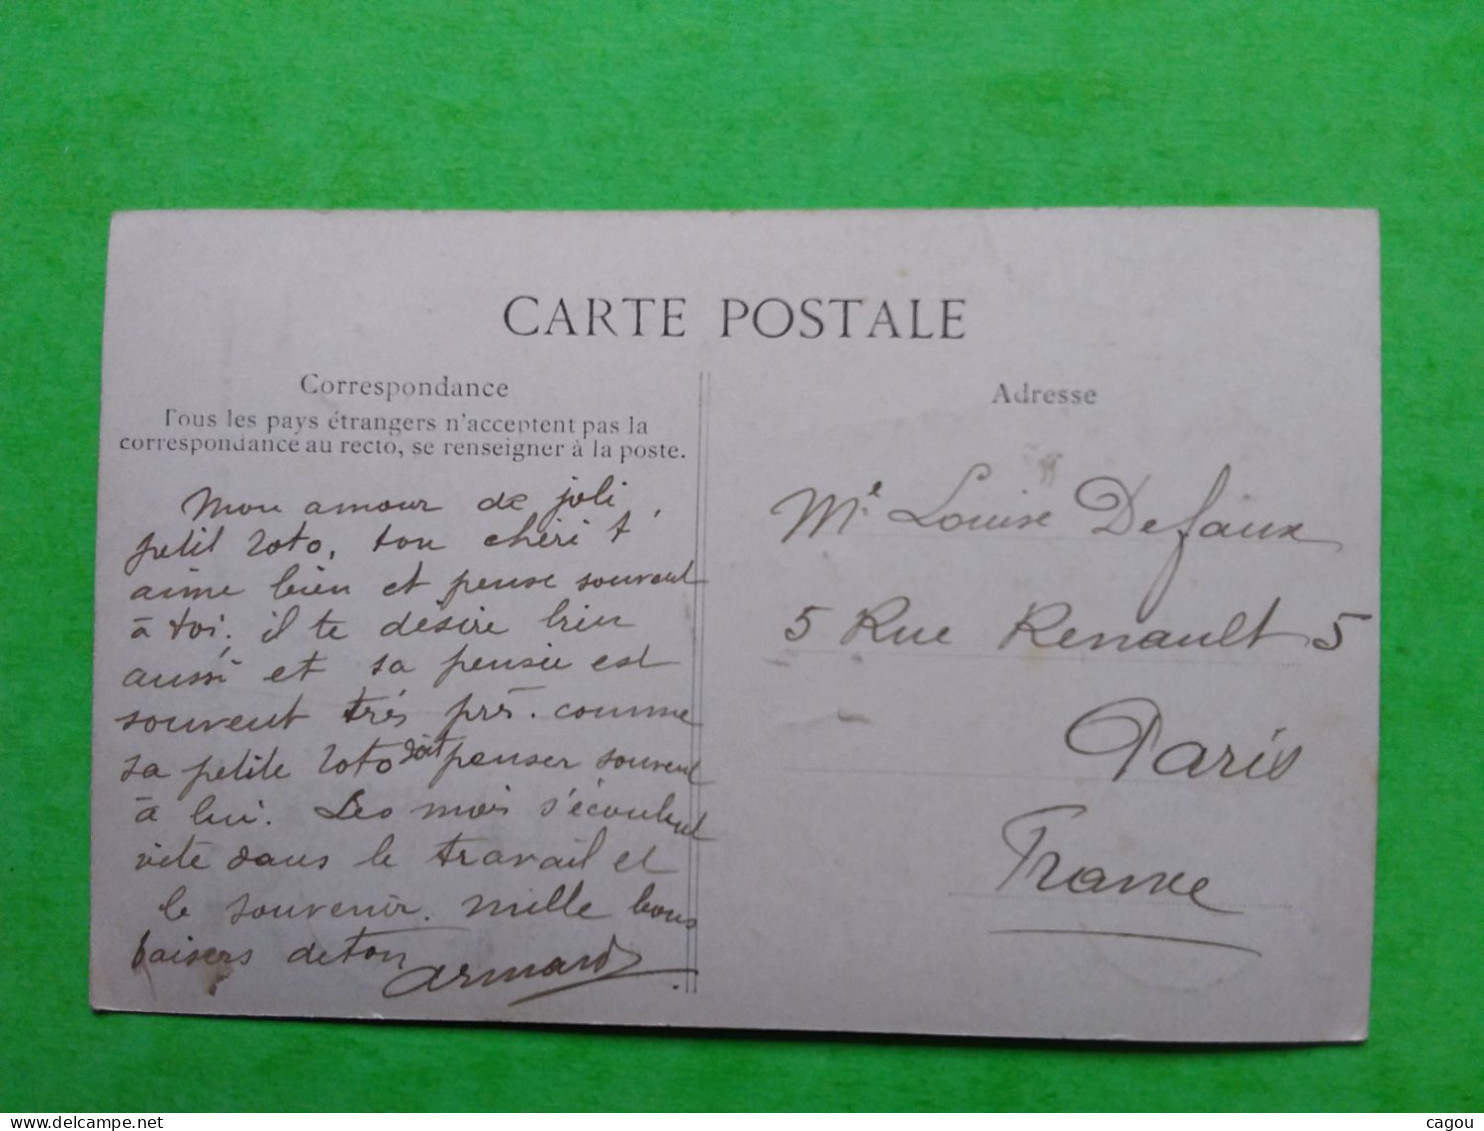 CARTE POSTALE
Correspondance
Tous les pays étrangers n'acceptent pas la
correspondance au recto, se renseigner à la poste.
Mon amour de joli,
petit Zoto, ton chéri t
aime bien et pense souvent
à toi, il te désire bien
aussi et sa pensée est
souvent très près. comme
sa petite Zoto doit penser souvent
à lui. Les mois s'écoulent
vite dans le travail et
le souvenir. Mille bons
baisers de ton Armand
Adresse
Mle Louise Defaux
5 Rue Renault 5
Paris
France
www.delcampe.net
cagou